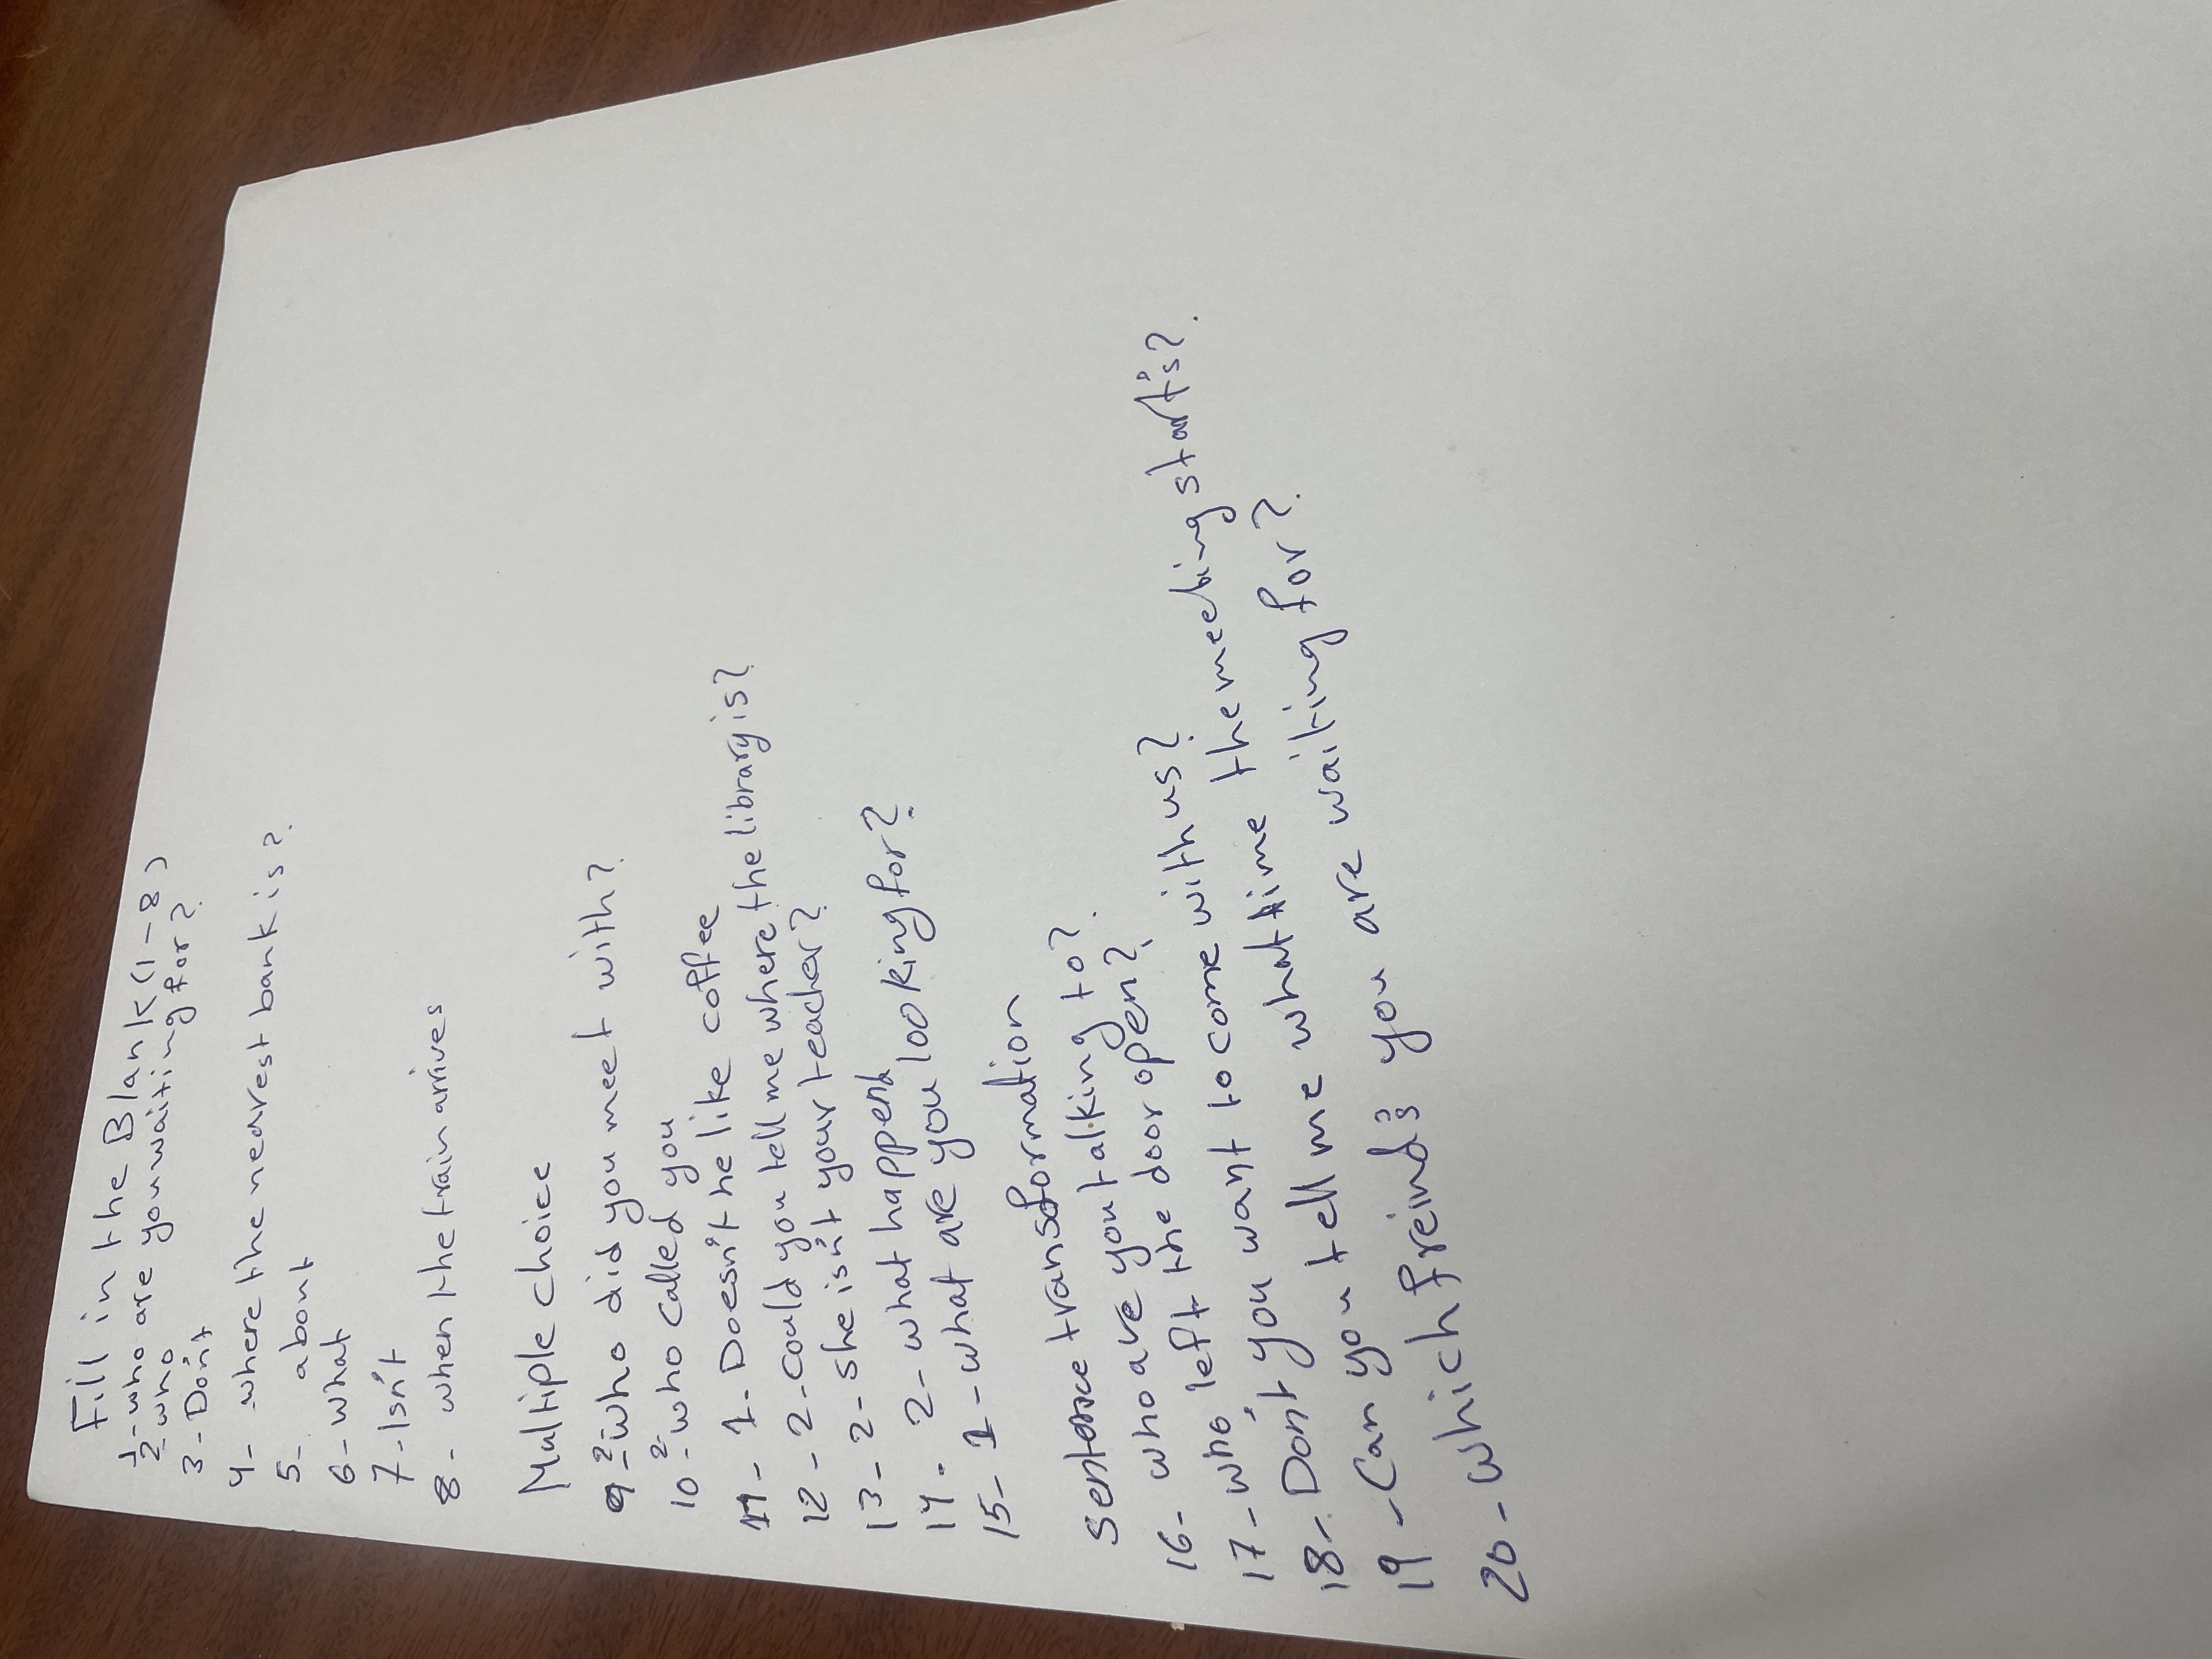 Fill in the Blank (1-8)
1- who are you waiting for?
2- who
3- Don't
4- where the nearest bank is?
5- about
6- what
7- Isn't
8- when the train arrives
Multiple choice
9- 2- who did you meet with?
10- 2- who called you
11- 1- Doesn't he like coffee
12- 2- could you tell me where the library is?
13- 2- she isn't your teacher?
14- 2- what happend
15- 1- what are you looking for?
sentence transformation
16- who are you talking to?
17- who left the door open?
18- Don't you want to come with us?
19- Can you tell me what time the meeting starts?
20- which freinds you are waiting for?